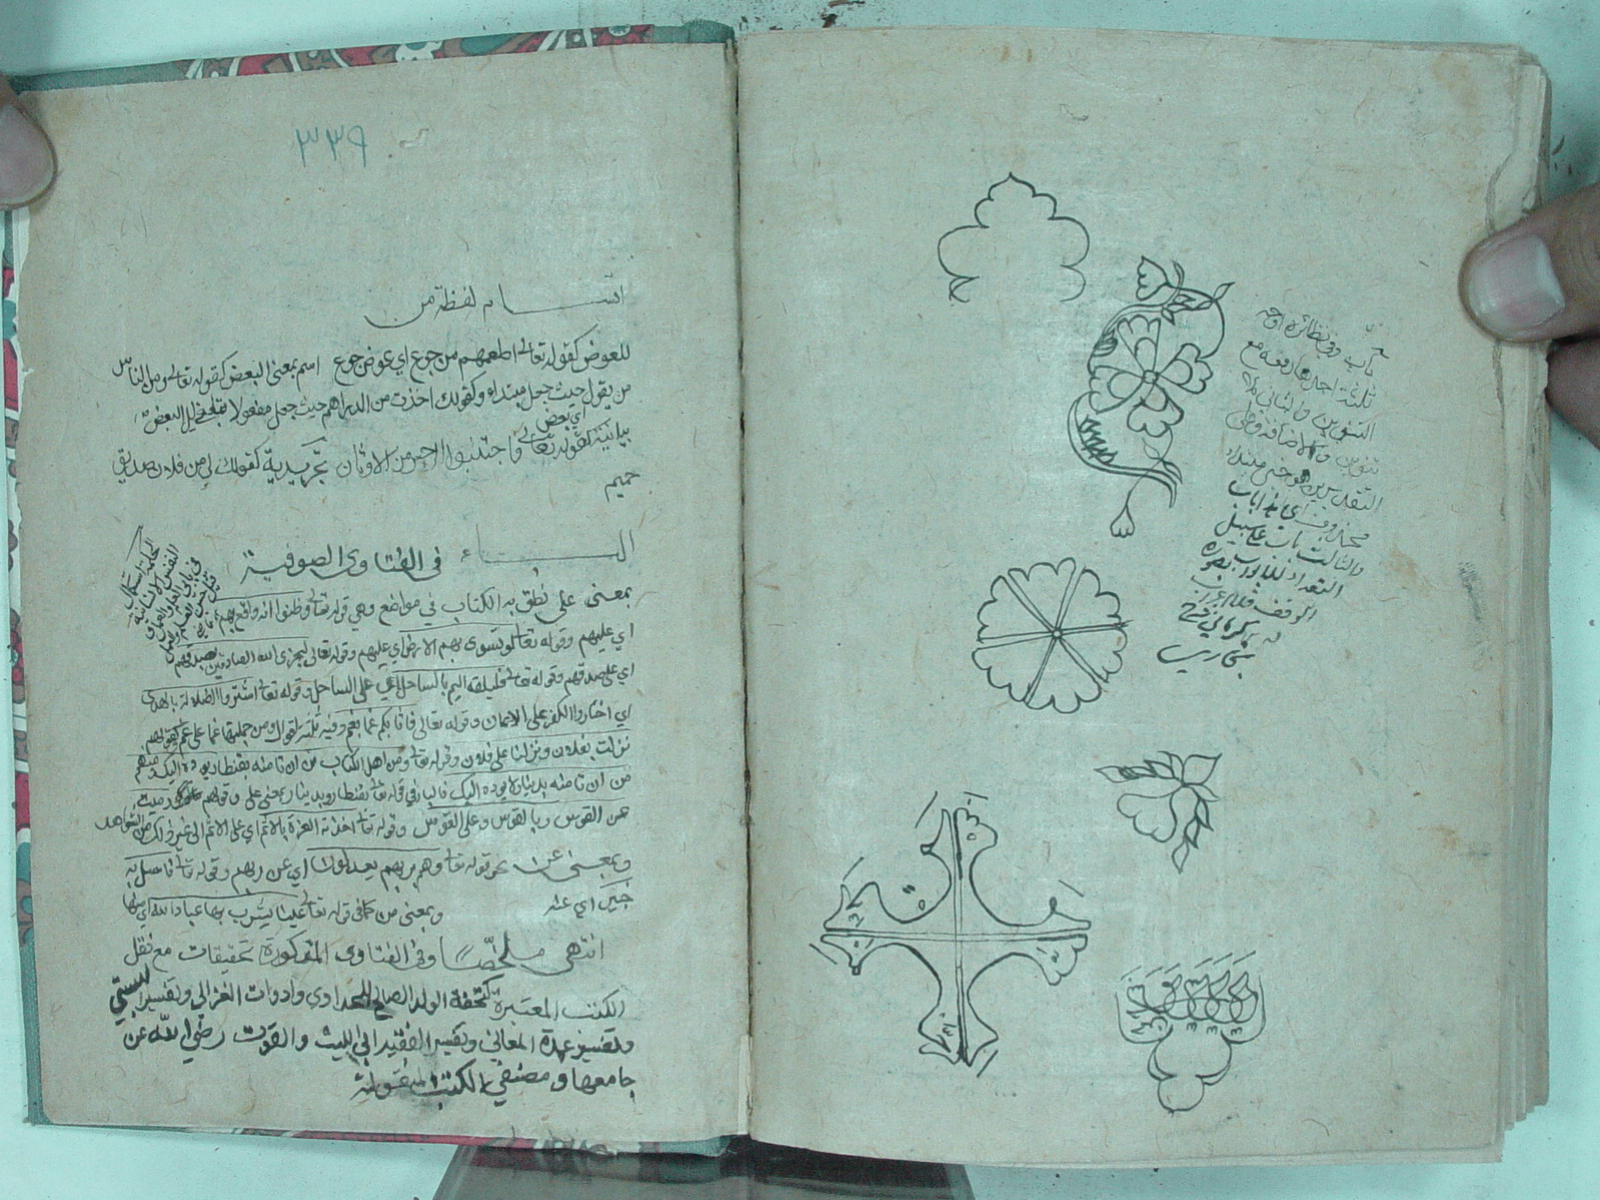 باب وفي نظائره اوجه
ثلثة احدها رفعه مع
التنوين والثاني بلا
تنوين
التقديرين هو خبر مبتداء
محذوف اي هذا باب
والثالث باب على سبيل
التعداد للابواب بصورة
الوقف فلا اعراب
له كرماني شرح
بخاري
٣٣٩
اقسام لفظة من
للعوض كقوله تعالى اطعمهم من جوع اي عوض جوع اسم بمعنى البعض كقوله تعالى ومن الناس
من يقول حيث جعل مبتداء وكقولك اخذت من الدراهم حيث جعل مفعولا
اي بعض
بيانية كقوله تعالى واجتنبوا الرجس من الاوثان تجريدية كقولك لي من فلان صديق
حميم
الباء في الفتاوى الصوفية
بمعنى على نطق به الكتاب في مواضع وهي قوله تعالى وظنوا انه واقع بهم
اي عليهم وقوله تعالى لو تسوى بهم الارض اي عليهم وقوله تعالى ليجزي الله الصادقين بصدقهم
اي على صدقهم وقوله تعالى فليلقه اليم بالساحل اي على الساحل وقوله تعالى اشتروا الضلالة بالهدى
اي اختاروا الكفر على الايمان وقوله تعالى فاثابكم غما بغم وفيه ثلثة اقوال ومن جملتها غما على غم كقولهم
نزلت بفلان ونزلنا على فلان وقوله تعالى ومن اهل الكتاب من ان تامنه بقنطار يؤده اليك ومنهم
من ان تامنه بدينار لا يؤده اليك فالباء في قوله تعالى بقنطار وبدينار بمعنى على وقولهم رميت
عن القوس وبالقوس وعلى القوس وقوله تعالى اخذته العزة بالاثم اي على الاثم الى غير ذلك من الشواهد
وبمعنى عن نحو قوله تعالى وهم بربهم يعدلون اي عن ربهم وقوله تعالى فاسئل به
خبيرا اي عنه وبمعنى من كما في قوله تعالى عينا يشرب بها عباد الله اي منها
انتهى ملخصا وفي الفتاوى المذكورة تحقيقات مع نقل
الكتب المعتبرة كتحفة الولد الصالح وادوات الغزالي وتفسير البستي
وتفسير عمدة المعاني وتفسير الفقيه ابي الليث والقوت رضي الله عن
جامعها ومصنفي الكتب المنقولة